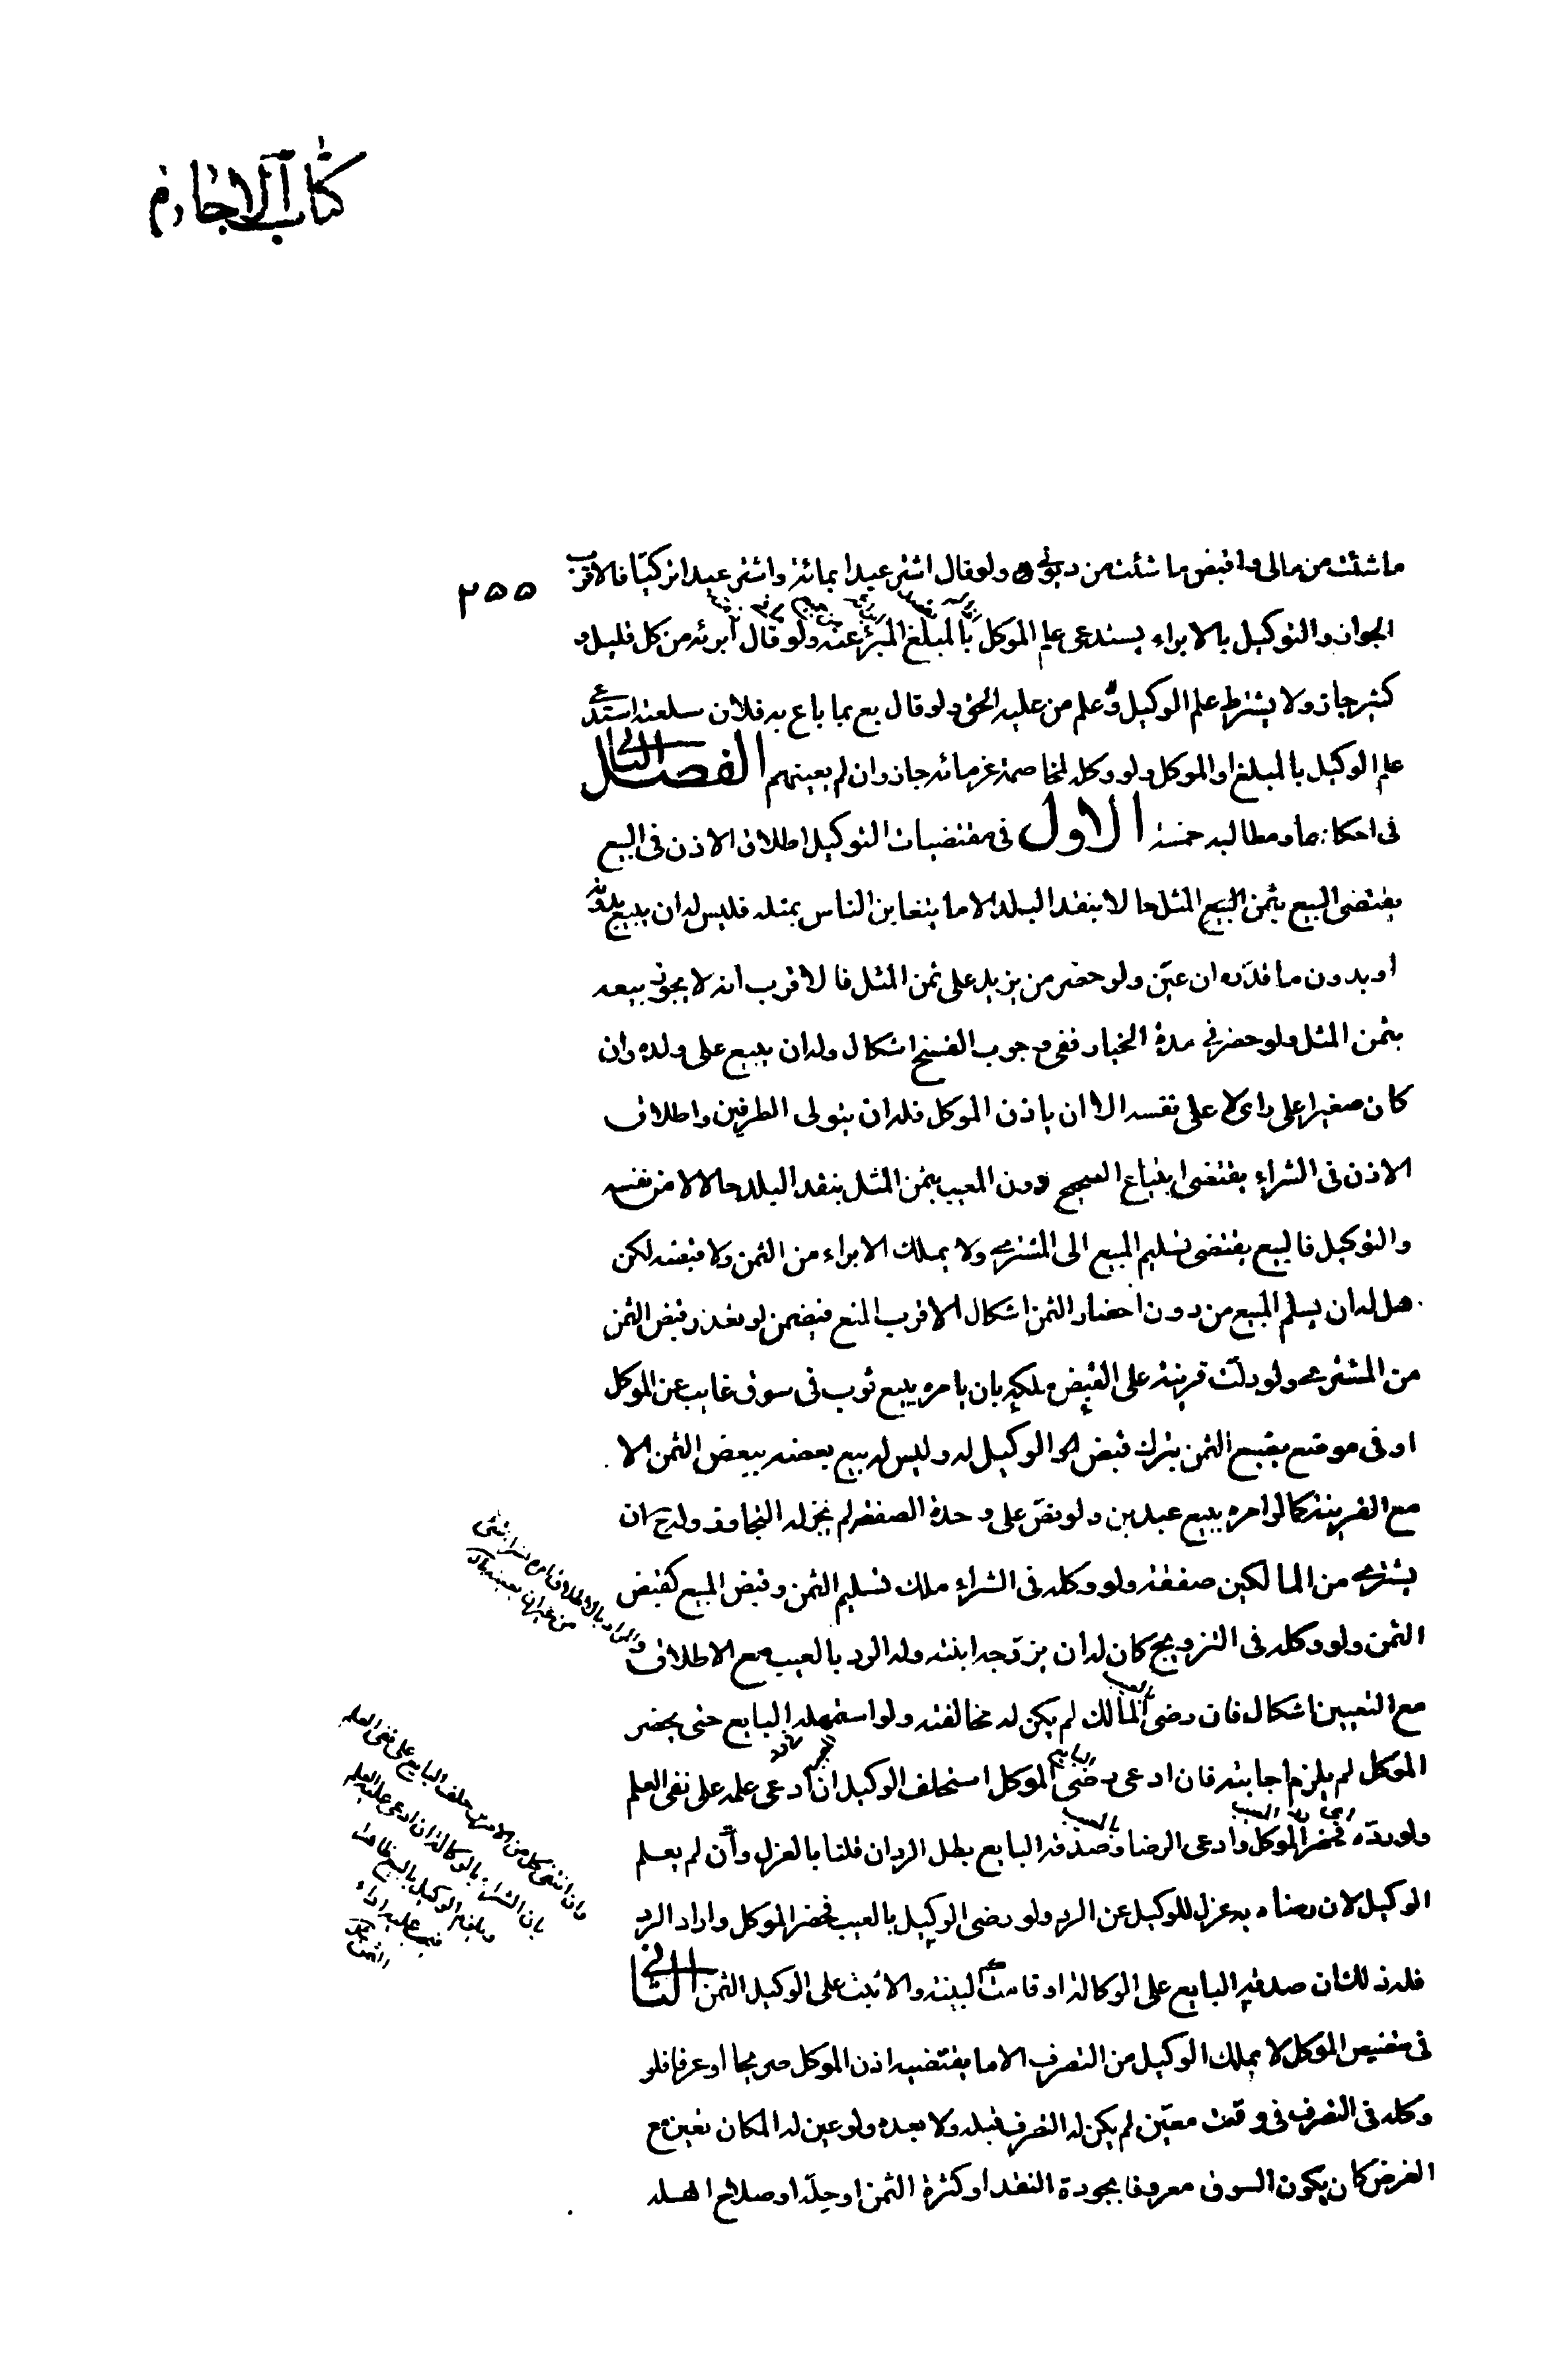 كتاب الاجارة
٢٥٥
ما شئت من مالي واقبض ما شئت من ديوني ولو قال اشتر عبدا بمائة واشتر عبدا تركيا فالاقرب
الجواز والتوكيل بالابراء يستدعى علم الموكل بالمبلغ المبرئ عنه ولو قال ابرئه من كل قليل و
كثير جاز ولا يشترط علم الوكيل ولا علم من عليه الحق ولو قال بع بما باع به فلان سلعته استدعى
علم الوكيل بالمبلغ او الموكل ولو وكله لمخاصمة غرمائه جاز وان لم يعينهم الفصل الثاني
في احكامها ومطالبه خمسة الاول في مقتضيات التوكيل اطلاق الاذن في البيع
يقتضى البيع بثمن البيع المثل حالا بنقد البلد الا ما يتغابن الناس بمثله فليس له ان يبيع بدونه
او بدون ما قدره ان عيّن ولو حضر من يزيد على ثمن المثل فالاقرب انه لا يجوز بيعه
بثمن المثل ولو حضر في مدة الخيار ففي وجوب الفسخ اشكال وله ان يبيع على ولده وان
كان صغيرا على راي لا على نفسه الا ان ياذن الموكل فله ان يتولى الطرفين واطلاق
الاذن في الشراء يقتضى ابتياع الصحيح دون المعيب بثمن المثل بنقد البلد حالا لا من نفسه
والتوكيل فالبيع يقتضى تسليم المبيع الى المشتري ولا يملك الابراء من الثمن ولا قبضه لكن
هل له ان يسلم المبيع من دون احضار الثمن اشكال الاقرب المنع فيضمن لو تعذر قبض الثمن
من المشتري ولو دلت قرينة على القبض ملكه بان يامره ببيع ثوب في سوق غايب عن الموكل
او في موضع يضيع الثمن بترك قبض الوكيل له وليس له بيع بعضه ببعض الثمن الا
مع القرينة كما لو امره ببيع عبدين ولو نصّ على وحدة الصفقة لم يجز له التجاوز وله ان
يشتري من المالكين صفقة ولو وكله في الشراء ملك تسليم الثمن وقبض المبيع كقبض
الثمن ولو وكله في التزويج كان له ان يزوّجه ابنته وله الرد بالعيب مع الاطلاق
مع التعيين اشكال فان رضى المالك لم يكن له مخالفته ولو استمهله البايع حتى يحضر
الموكل لم يلزم اجابته فان ادعى رضى الموكل استحلف الوكيل ان ادعى علمه على نفي العلم
ولو ردّه فحضر الموكل وادعى الرضا وصدقه البايع بطل الرد ان قلنا بالعزل وان لم يعلم
الوكيل لان رضاه به عزل للوكيل عن الرد ولو رضى الوكيل بالعيب فحضر الموكل واراد الرد
فله ذلك ان صدقه البايع على الوكالة او قامت البينة والا ثبت على الوكيل الثمن الثاني
في تنصيص الموكل لا يملك الوكيل من التصرف الا ما يقتضيه اذن الموكل صريحا او عرفا فلو
وكله في التصرف في وقت معيّن لم يكن له التصرف قبله ولا بعده ولو عين له المكان تعين مع
الغرض كان يكون السوق معروفا بجودة النقد او كثرة الثمن او حلّه او صلاح اهله